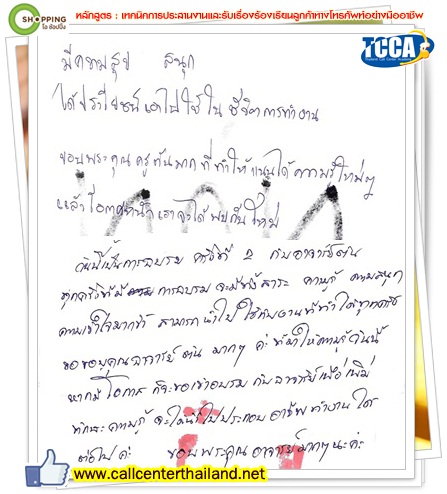 SHOPPING
โอ ช้อปปิ้ง
หลักสูตร : เทคนิคการประสานงานและรับเรื่องร้องเรียนลูกค้าทางโทรศัพท์อย่างมืออาชีพ
TCCA
Thailand Call Center Academy
มีความสุข สนุก
ได้ประโยชน์เอาไปใช้ใน ชีวิตการทำงาน
ขอบพระคุณครูต้นมากที่ทำให้แนนได้ความรู้ใหม่ๆ
แล้วโอกาสหน้าเราจะได้พบกันใหม่
วันนี้เป็นการอบรม ครั้งที่ 2 กับอาจารย์ต้น
ทุกครั้งที่มีการอบรม จะมีทั้งสาระ ความรู้ ความสนุก
ความเข้าใจมากขึ้น สามารถนำไปใช้กับงานที่ทำได้ทุกครั้ง
ขอขอบคุณอาจารย์ ต้น มากๆ ค่ะ ที่มาให้ความรู้วันนี้
หากมีโอกาส ก็จะขอเข้าอบรม กับอาจารย์เพื่อเพิ่ม
ทักษะ ความรู้ จะได้นำไปประกอบ อาชีพทำงาน ได้
ต่อไป ค่ะ ขอบพระคุณ อาจารย์มากๆนะค่ะ
www.callcenterthailand.net